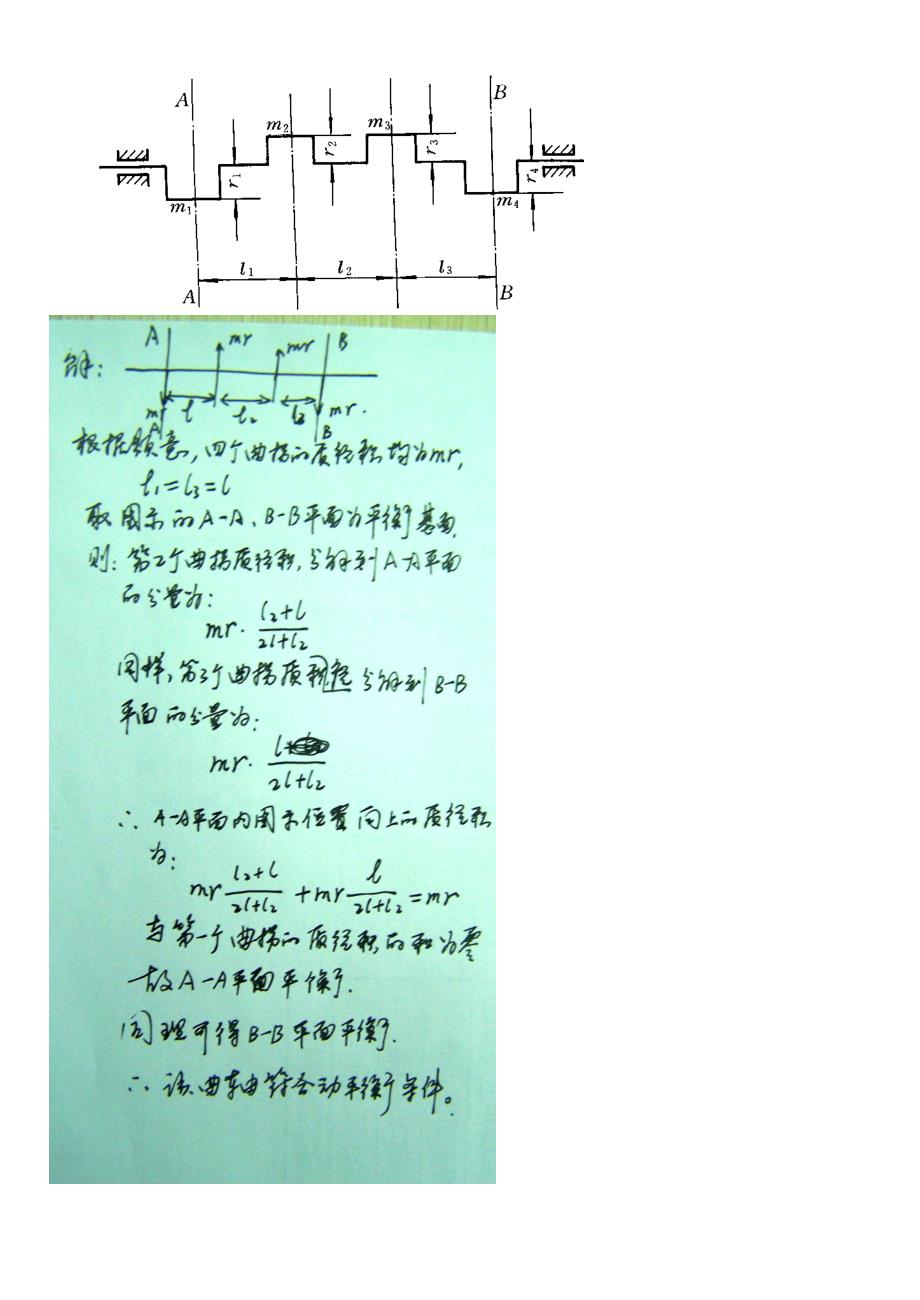 A B
m₂ m₃
r₂ r₃
r₁ r₄
m₁ m₄
l₁ l₂ l₃
A B
解：
A mr mr B
mr l l₂ l₃ mr.
A B
根据题意，四个曲拐的质径积均为mr,
l₁=l₃=l
取图示的A-A、B-B平面为平衡基面.
则：第2个曲拐质径积，分解到A-A平面
的分量为：
mr· (l₂+l)/(2l+l₂)
同样，第3个曲拐质积径分解到B-B
平面的分量为：
mr· l/(2l+l₂)
∴ A-A平面内图示位置向上的质径积
为：
mr (l₂+l)/(2l+l₂) +mr l/(2l+l₂) =mr
与第一个曲拐的质径积的和为零
故A-A平面平衡.
同理可得B-B平面平衡.
∴ 该曲轴符合动平衡条件。